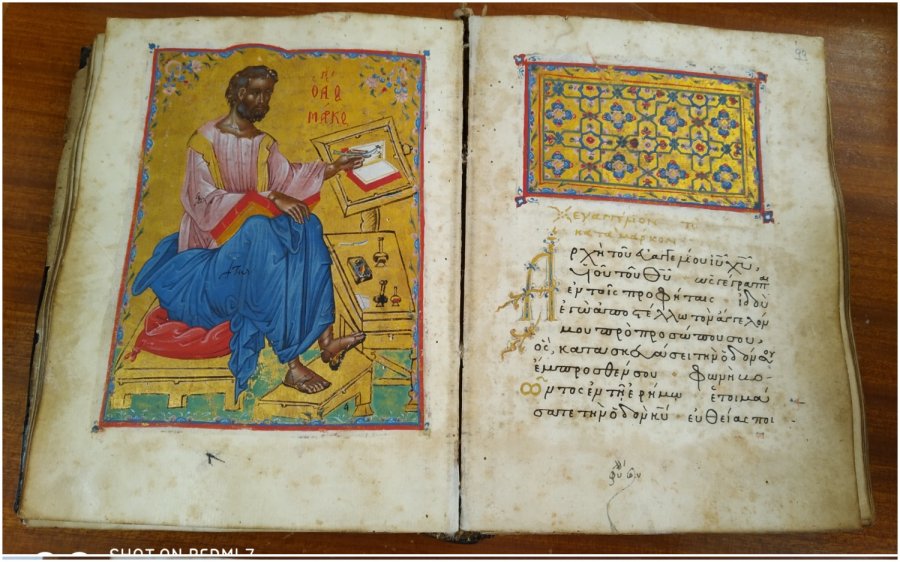 ΜΑΡΚΟ
ΕΥΑΓΓΕΛΙΟΝ
ΚΑΤΑ ΜΑΡΚΟΝ
Ἀρχὴ τοῦ εὐαγγελίου ἰῦ χῦ,
υἱοῦ τοῦ θῦ ὡς γέγραπται
ἐν τοῖς προφήταις· ἰδοὺ
ἐγὼ ἀποστέλλω τὸν ἄγγελόν
μου πρὸ προσώπου σου,
ὅς, κατασκευάσει τὴν ὁδόν σου
ἔμπροσθέν σου· φωνὴ βο
ῶντος ἐν τῇ ἐρήμῳ ἑτοιμά
σατε τὴν ὁδὸν κῦ· εὐθείας ποι
SHOT ON REDMI 7